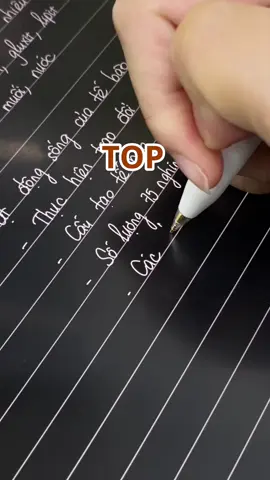 nhiều
, gluxit, lipit
muối, nước
động sống của tế bào
- Thực hiện trao đổi
- Cấu tạo tế
- Số lượng 75 nghìn
- Các
TOP